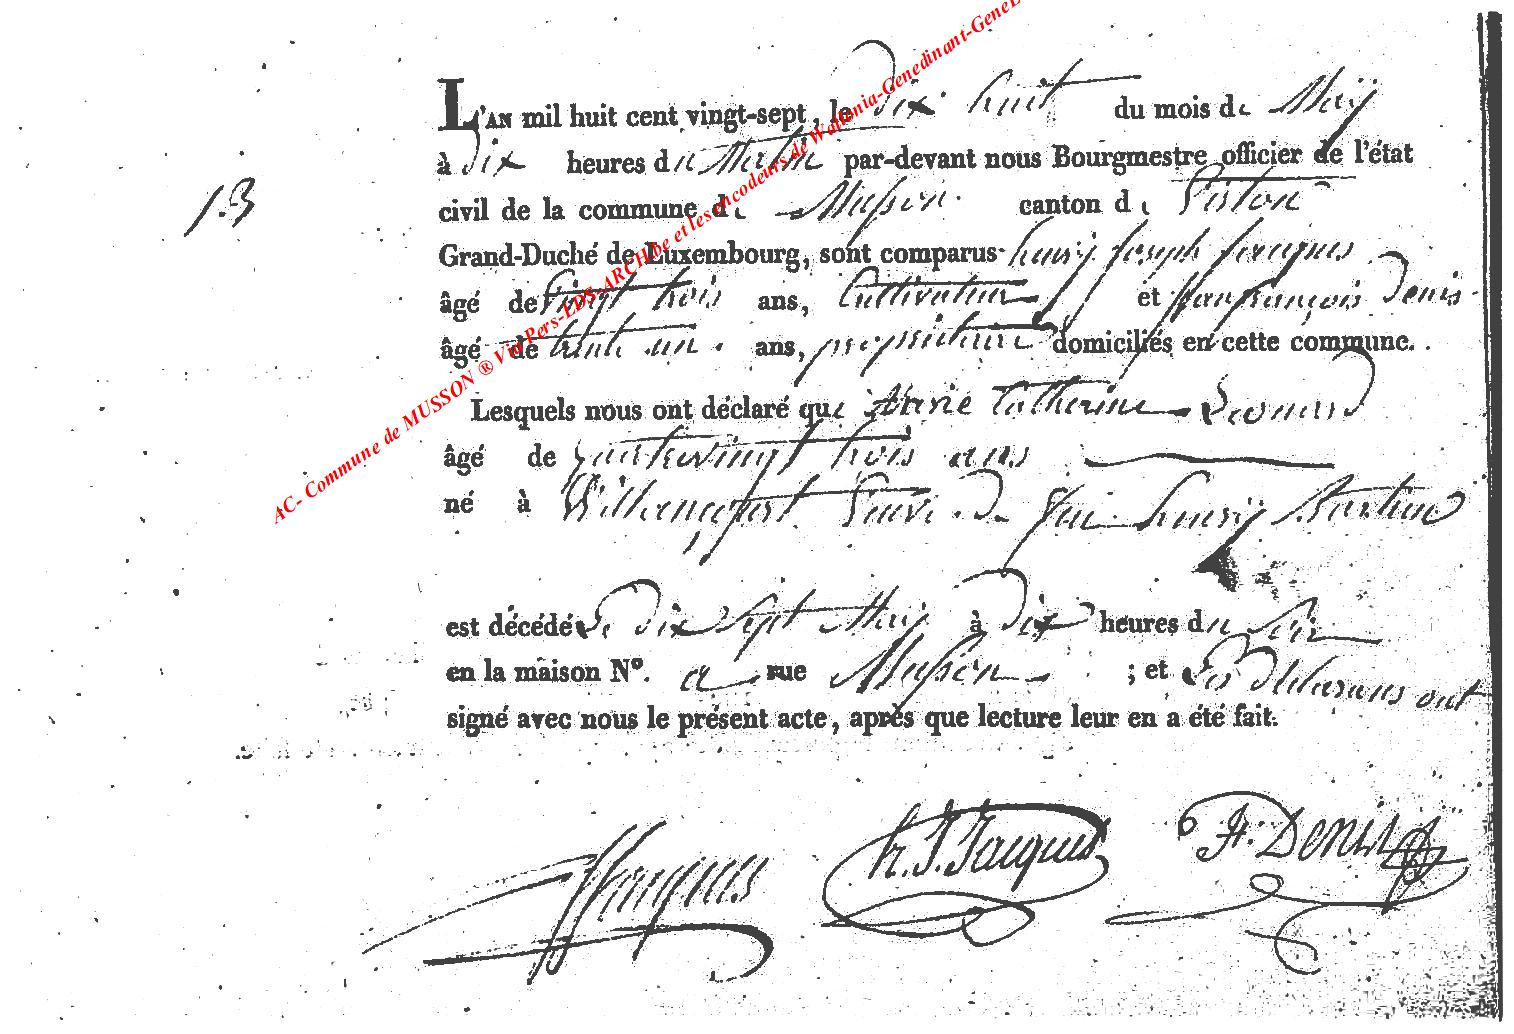 L'AN mil huit cent vingt-sept, le dix huit du mois de Maÿ
à dix heures du Matin par-devant nous Bourgmestre officier de l'état
13
civil de la commune de Musson canton de Virton
Grand-Duché de Luxembourg, sont comparus henrÿ Joseph Jacques
âgé de Vingt trois ans, Cultivateur et Jean françois Denis
âgé de trente un ans, propriétaire domiciliés en cette commune.
Lesquels nous ont déclaré que Marie Catherine Leonard
âgé de quatrevingt trois ans
né à Villancourt Veuve de feu henrÿ
est décédé Le dix Sept Maÿ à dix heures du Soir
en la maison N°. a rue Musson ; et Les Déclarans ont
signé avec nous le présent acte, après que lecture leur en a été fait.
Jacques h. J. Jacques Jf. Denis
AC- Commune de MUSSON ® Via Pers-LDS-ARCH.be et les encodeurs de Wallonia-Genedinant-GeneL